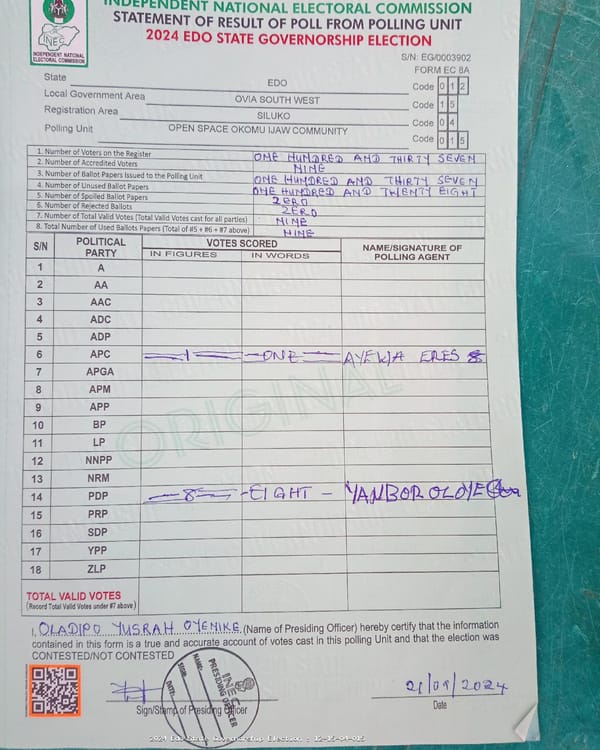 INDEPENDENT NATIONAL ELECTORAL COMMISSION
STATEMENT OF RESULT OF POLL FROM POLLING UNIT
2024 EDO STATE GOVERNORSHIP ELECTION
INEC
INDEPENDENT NATIONAL ELECTORAL COMMISSION
S/N: EG/0003902
FORM EC 8A
State EDO Code 0 1 2
Local Government Area OVIA SOUTH WEST Code 1 5
Registration Area SILUKO Code 0 4
Polling Unit OPEN SPACE OKOMU IJAW COMMUNITY Code 0 1 5
1. Number of Voters on the Register ONE HUNDRED AND THIRTY SEVEN
2. Number of Accredited Voters NINE
3. Number of Ballot Papers Issued to the Polling Unit ONE HUNDRED AND THIRTY SEVEN
4. Number of Unused Ballot Papers ONE HUNDRED AND TWENTY EIGHT
5. Number of Spoiled Ballot Papers ZERO
6. Number of Rejected Ballots ZERO
7. Number of Total Valid Votes (Total Valid Votes cast for all parties) NINE
8. Total Number of Used Ballots Papers (Total of #5 + #6 + #7 above) NINE
S/N POLITICAL PARTY VOTES SCORED NAME/SIGNATURE OF POLLING AGENT
IN FIGURES IN WORDS
1 A
2 AA
3 AAC
4 ADC
5 ADP
6 APC 1 ONE AYEWA ERES
7 APGA
8 APM
9 APP
10 BP
11 LP
12 NNPP
13 NRM
14 PDP 8 EIGHT YANBOR OLOYE
15 PRP
16 SDP
17 YPP
18 ZLP
ORIGINAL
TOTAL VALID VOTES
(Record Total Valid Votes under #7 above)
I, OLADIPO YUSRAH OYENIKE (Name of Presiding Officer) hereby certify that the information
contained in this form is a true and accurate account of votes cast in this polling Unit and that the election was
CONTESTED/NOT CONTESTED
INEC
PRESIDING OFFICER
NAME:
SIGN:
DATE:
21/09/2024
Sign/Stamp of Presiding Officer Date
2024 Edo State Governorship Election : 12-15-04-015